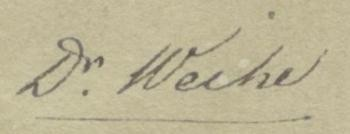 Dr. Weihe